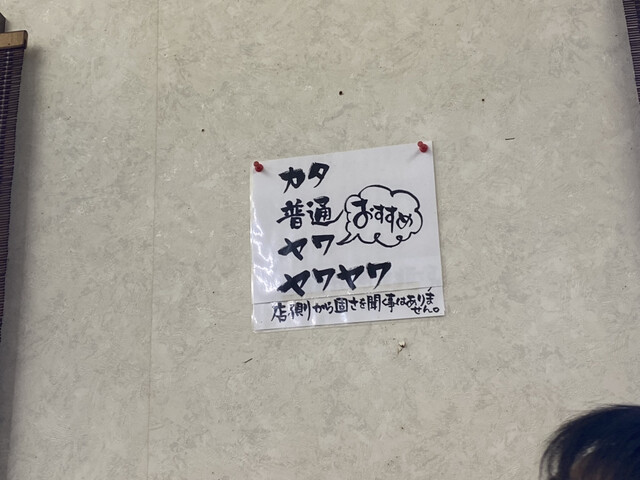 カタ
普通
ヤワ
おすすめ
ヤワヤワ
店側から固さを聞く事はありません。